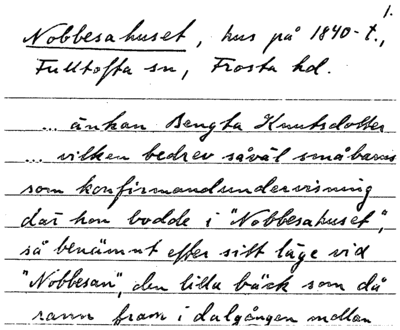 1.
Nobbesahuset, hus på 1840-t.,
Fulltofta sn, Frosta hd.
... änkan Bengta Knutsdotter
... vilken bedrev såväl småbarns
som konfirmandundervisning
där hon bodde i "Nobbesahuset",
så benämnt efter sitt läge vid
"Nobbesan", den lilla bäck som då
rann fram i dalgången mellan